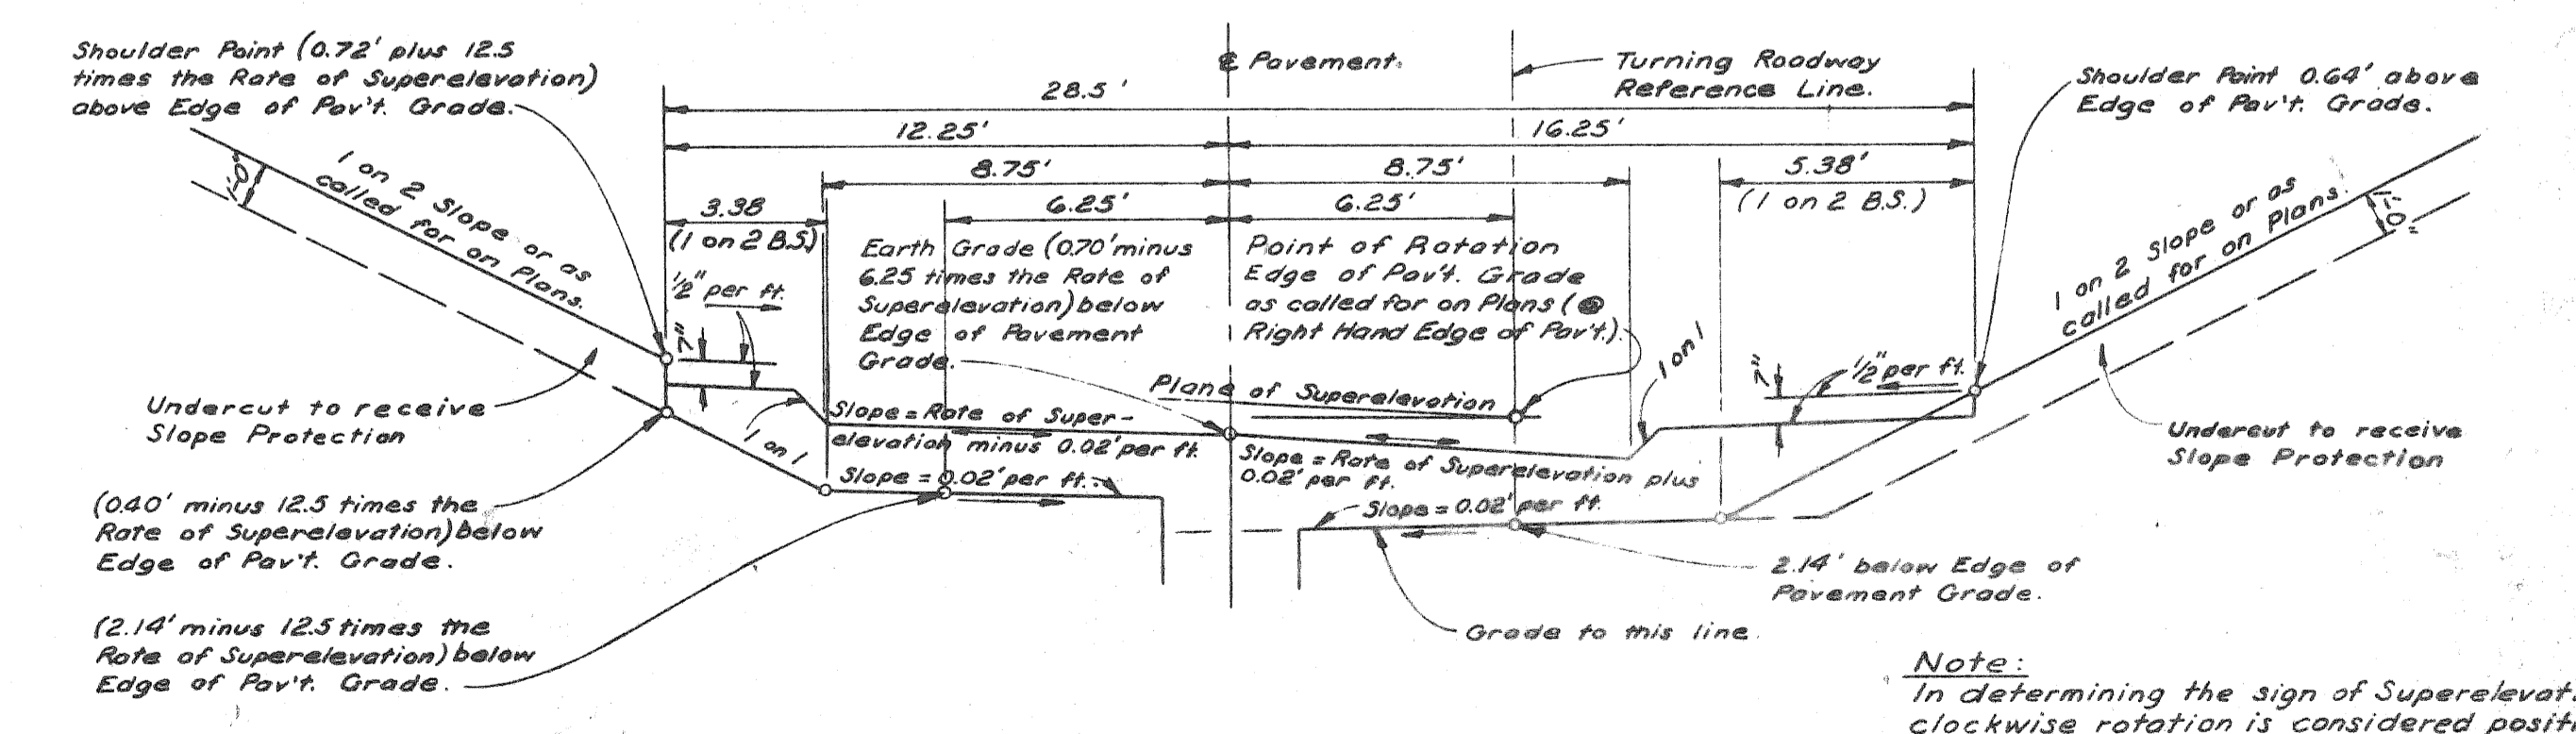 Shoulder Point (0.72' plus 12.5
times the Rate of Superelevation)
above Edge of Pav't. Grade.
℄ Pavement.
Turning Roadway
Reference Line.
Shoulder Point 0.64' above
Edge of Pav't. Grade.
28.5'
12.25'
16.25'
8.75'
8.75'
5.38'
(1 on 2 B.S.)
3.38
(1 on 2 B.S.)
6.25'
6.25'
1'-0"
1 on 2 Slope or as
called for on Plans.
1/2" per ft.
7"
Earth Grade (0.70' minus
6.25 times the Rate of
Superelevation) below
Edge of Pavement
Grade.
Point of Rotation
Edge of Pav't. Grade
as called for on Plans (@
Right Hand Edge of Pav't.)
1 on 1
7"
1/2" per ft.
1 on 2 Slope or as
called for on Plans.
1'-0"
Plane of Superelevation
Undercut to receive
Slope Protection
Slope = Rate of Super-
elevation minus 0.02' per ft.
1 on 1
Slope = 0.02' per ft.
Slope = Rate of Superelevation plus
0.02' per ft.
Slope = 0.02' per ft.
Undercut to receive
Slope Protection
(0.40' minus 12.5 times the
Rate of Superelevation) below
Edge of Pav't. Grade.
2.14' below Edge of
Pavement Grade.
Grade to this line.
(2.14' minus 12.5 times the
Rate of Superelevation) below
Edge of Pav't. Grade.
Note:
In determining the sign of Superelevat
clockwise rotation is considered posit